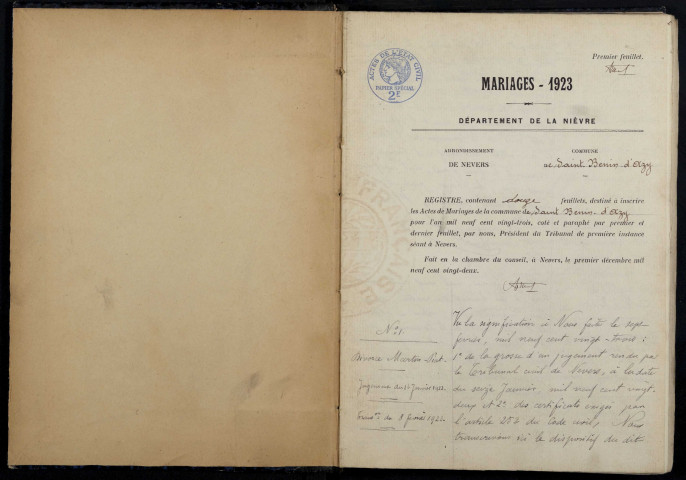 Premier feuillet.
ACTES DE L'ETAT CIVIL
PAPIER SPECIAL
2F
MARIAGES - 1923
DÉPARTEMENT DE LA NIÈVRE
ARRONDISSEMENT
DE NEVERS
COMMUNE
de Saint Benin d'Azy
REGISTRE, contenant douze feuillets, destiné à inscrire
les Actes de Mariages de la commune de Saint Benin-d'Azy
pour l'an mil neuf cent vingt-trois, coté et paraphé par premier et
dernier feuillet, par nous, Président du Tribunal de première instance
séant à Nevers.
Fait en la chambre du conseil, à Nevers, le premier décembre mil
neuf cent vingt-deux.
FRANÇAISE
N° 1.
Divorce Martin
Jugement du 16 Janvier 1922
du 8 février 1922
Vu la signification à Nous faite le sept
février, mil neuf cent vingt-trois :
1° de la grosse d'un jugement rendu par
le Tribunal civil de Nevers, à la date
du seize Janvier, mil neuf cent vingt-
deux et 2° des certificats exigés par
l'article 252 du Code civil, Nous
transcrivons ici le dispositif du dit